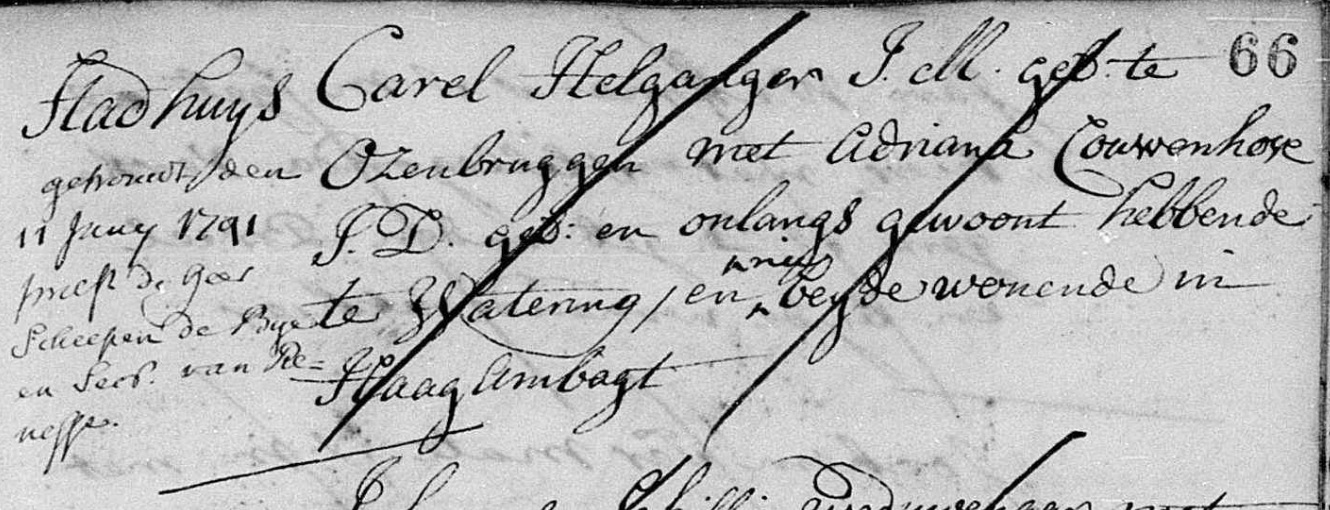 66
Stadhuys
getrouwt den
11 Juny 1791
pres.t de Geer
Scheepen de Bye
en Secr. van Re=
nesse.
Carel Helganger J.M. geb. te
Ozenbruggen met Adriana Couwenhove
J.D. geb: en onlangs gewoont hebbende
te Watering, en nu beyde wonende in
Haag Ambagt